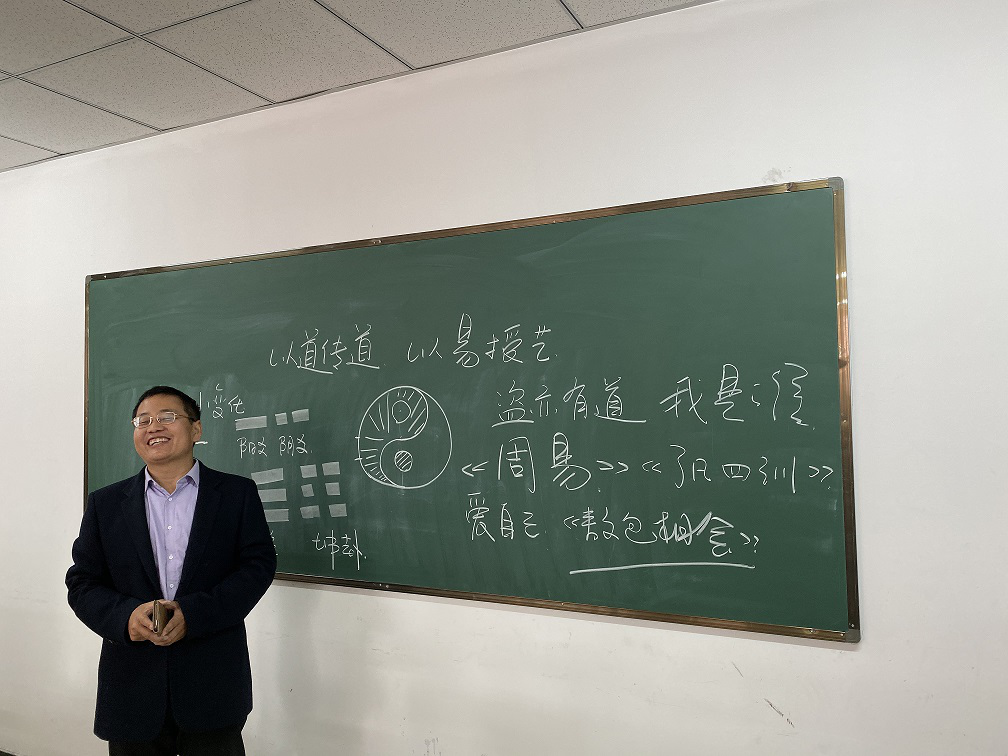 以道传道 以易授艺
变化
盗亦有道 我是谁
阳爻 阴爻
《周易》《了凡四训》
爱自己 《敖包相会》
坤卦